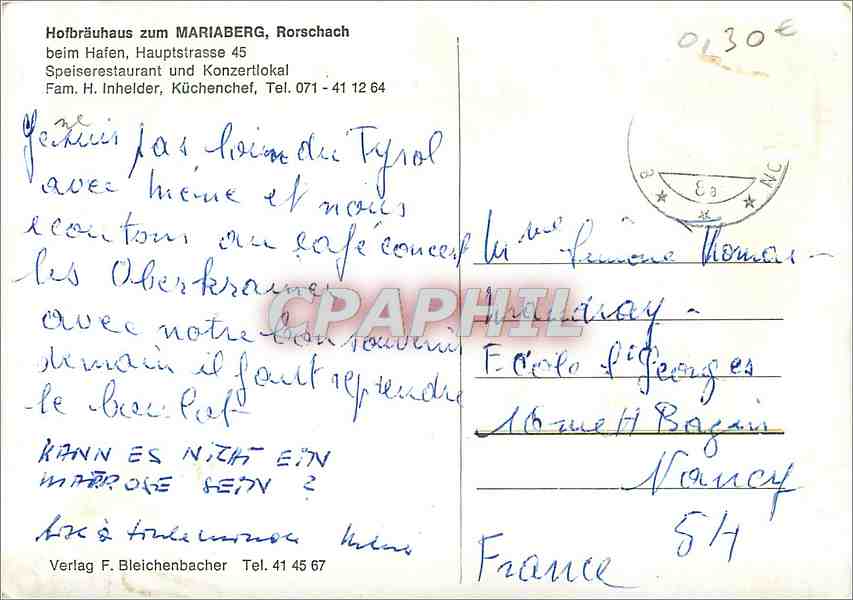 Hofbräuhaus zum MARIABERG, Rorschach
beim Hafen, Hauptstrasse 45
Speiserestaurant und Konzertlokal
Fam. H. Inhelder, Küchenchef, Tel. 071 - 41 12 64
0,30 €
Je ne suis pas loin du Tyrol
avec et nous
écoutons au café concert
les Oberkrainer
avec notre bon souvenir
demain il faut reprendre
le boulot
KANN ES NICHT EIN
MATROSE SEIN ?
à tout le monde
Verlag F. Bleichenbacher Tel. 41 45 67
Mme Simone Thomas
Ecole St Georges
16 rue H Bazin
Nancy
54
France
8a
CPAPHIL